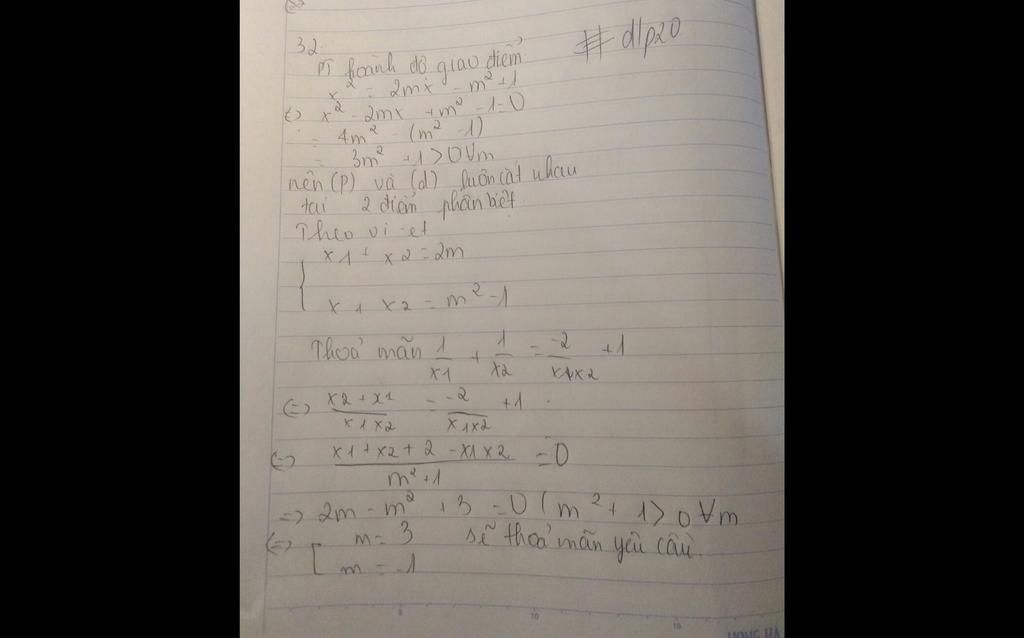 32.
# dlp20
PT hoành độ giao điểm
x² = 2mx - m² + 1
<=> x² - 2mx + m² - 1 = 0
= 4m² - (m² - 1)
= 3m² + 1 > 0 ∀m
nên (P) và (d) luôn cắt nhau
tại 2 điểm phân biệt
Theo vi-et
{ x1 + x2 = 2m
x1 x2 = m² - 1
Thoả mãn 1/x1 + 1/x2 = -2/x1x2 + 1
<=> (x2 + x1)/(x1x2) = -2/(x1x2) + 1.
<=> (x1 + x2 + 2 - x1x2)/(m² + 1) = 0
=> 2m - m² + 3 = 0 (m² + 1 > 0 ∀m
<=> [ m = 3 sẽ thoả mãn yêu cầu.
m = -1
HONG HA